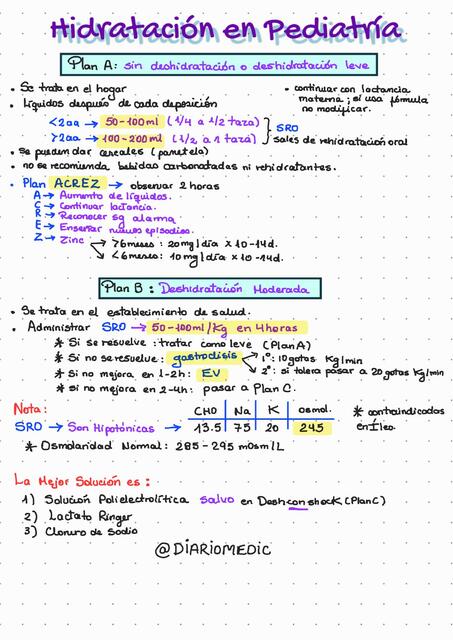 Hidratación en Pediatría
Plan A: sin deshidratación o deshidratación leve
• Se trata en el hogar
• continuar con lactancia materna; si usa fórmula no modificar.
• Líquidos después de cada deposición
<2aa → 50-100ml (1/4 a 1/2 taza)
>2aa → 100-200ml (1/2 a 1 taza)
SRO
sales de rehidratación oral
• Se pueden dar cereales (panetela)
• no se recomienda bebidas carbonatadas ni rehidratantes.
• Plan ACREZ → observar 2 horas
A → Aumento de líquidos.
C → Continuar lactancia.
R → Reconocer sg alarma
E → Enseñar nuevos episodios.
Z → Zinc
>6 meses: 20mg/día x 10-14d.
<6 meses: 10mg/día x 10-14d.
Plan B: Deshidratación Moderada
• Se trata en el establecimiento de salud.
• Administrar SRO → 50-100ml/Kg en 4 horas
* Si se resuelve: tratar como leve (Plan A)
* Si no se resuelve: gastroclisis
1º: 10gotas Kg/min
2º: si tolera pasar a 20gotas Kg/min
* Si no mejora en 1-2h: EV
* si no mejora en 2-4h: pasar a Plan C.
Nota:
CHO Na K osmol.
SRO → Son Hipotónicas → 13.5 75 20 245
* contraindicados en Íleo.
* Osmolaridad Normal: 285-295 mosm/L
La Mejor Solución es:
1) Solución Polielectrolítica salvo en Desh con shock (Plan C)
2) Lactato Ringer
3) Cloruro de Sodio
@DIARIOMEDIC